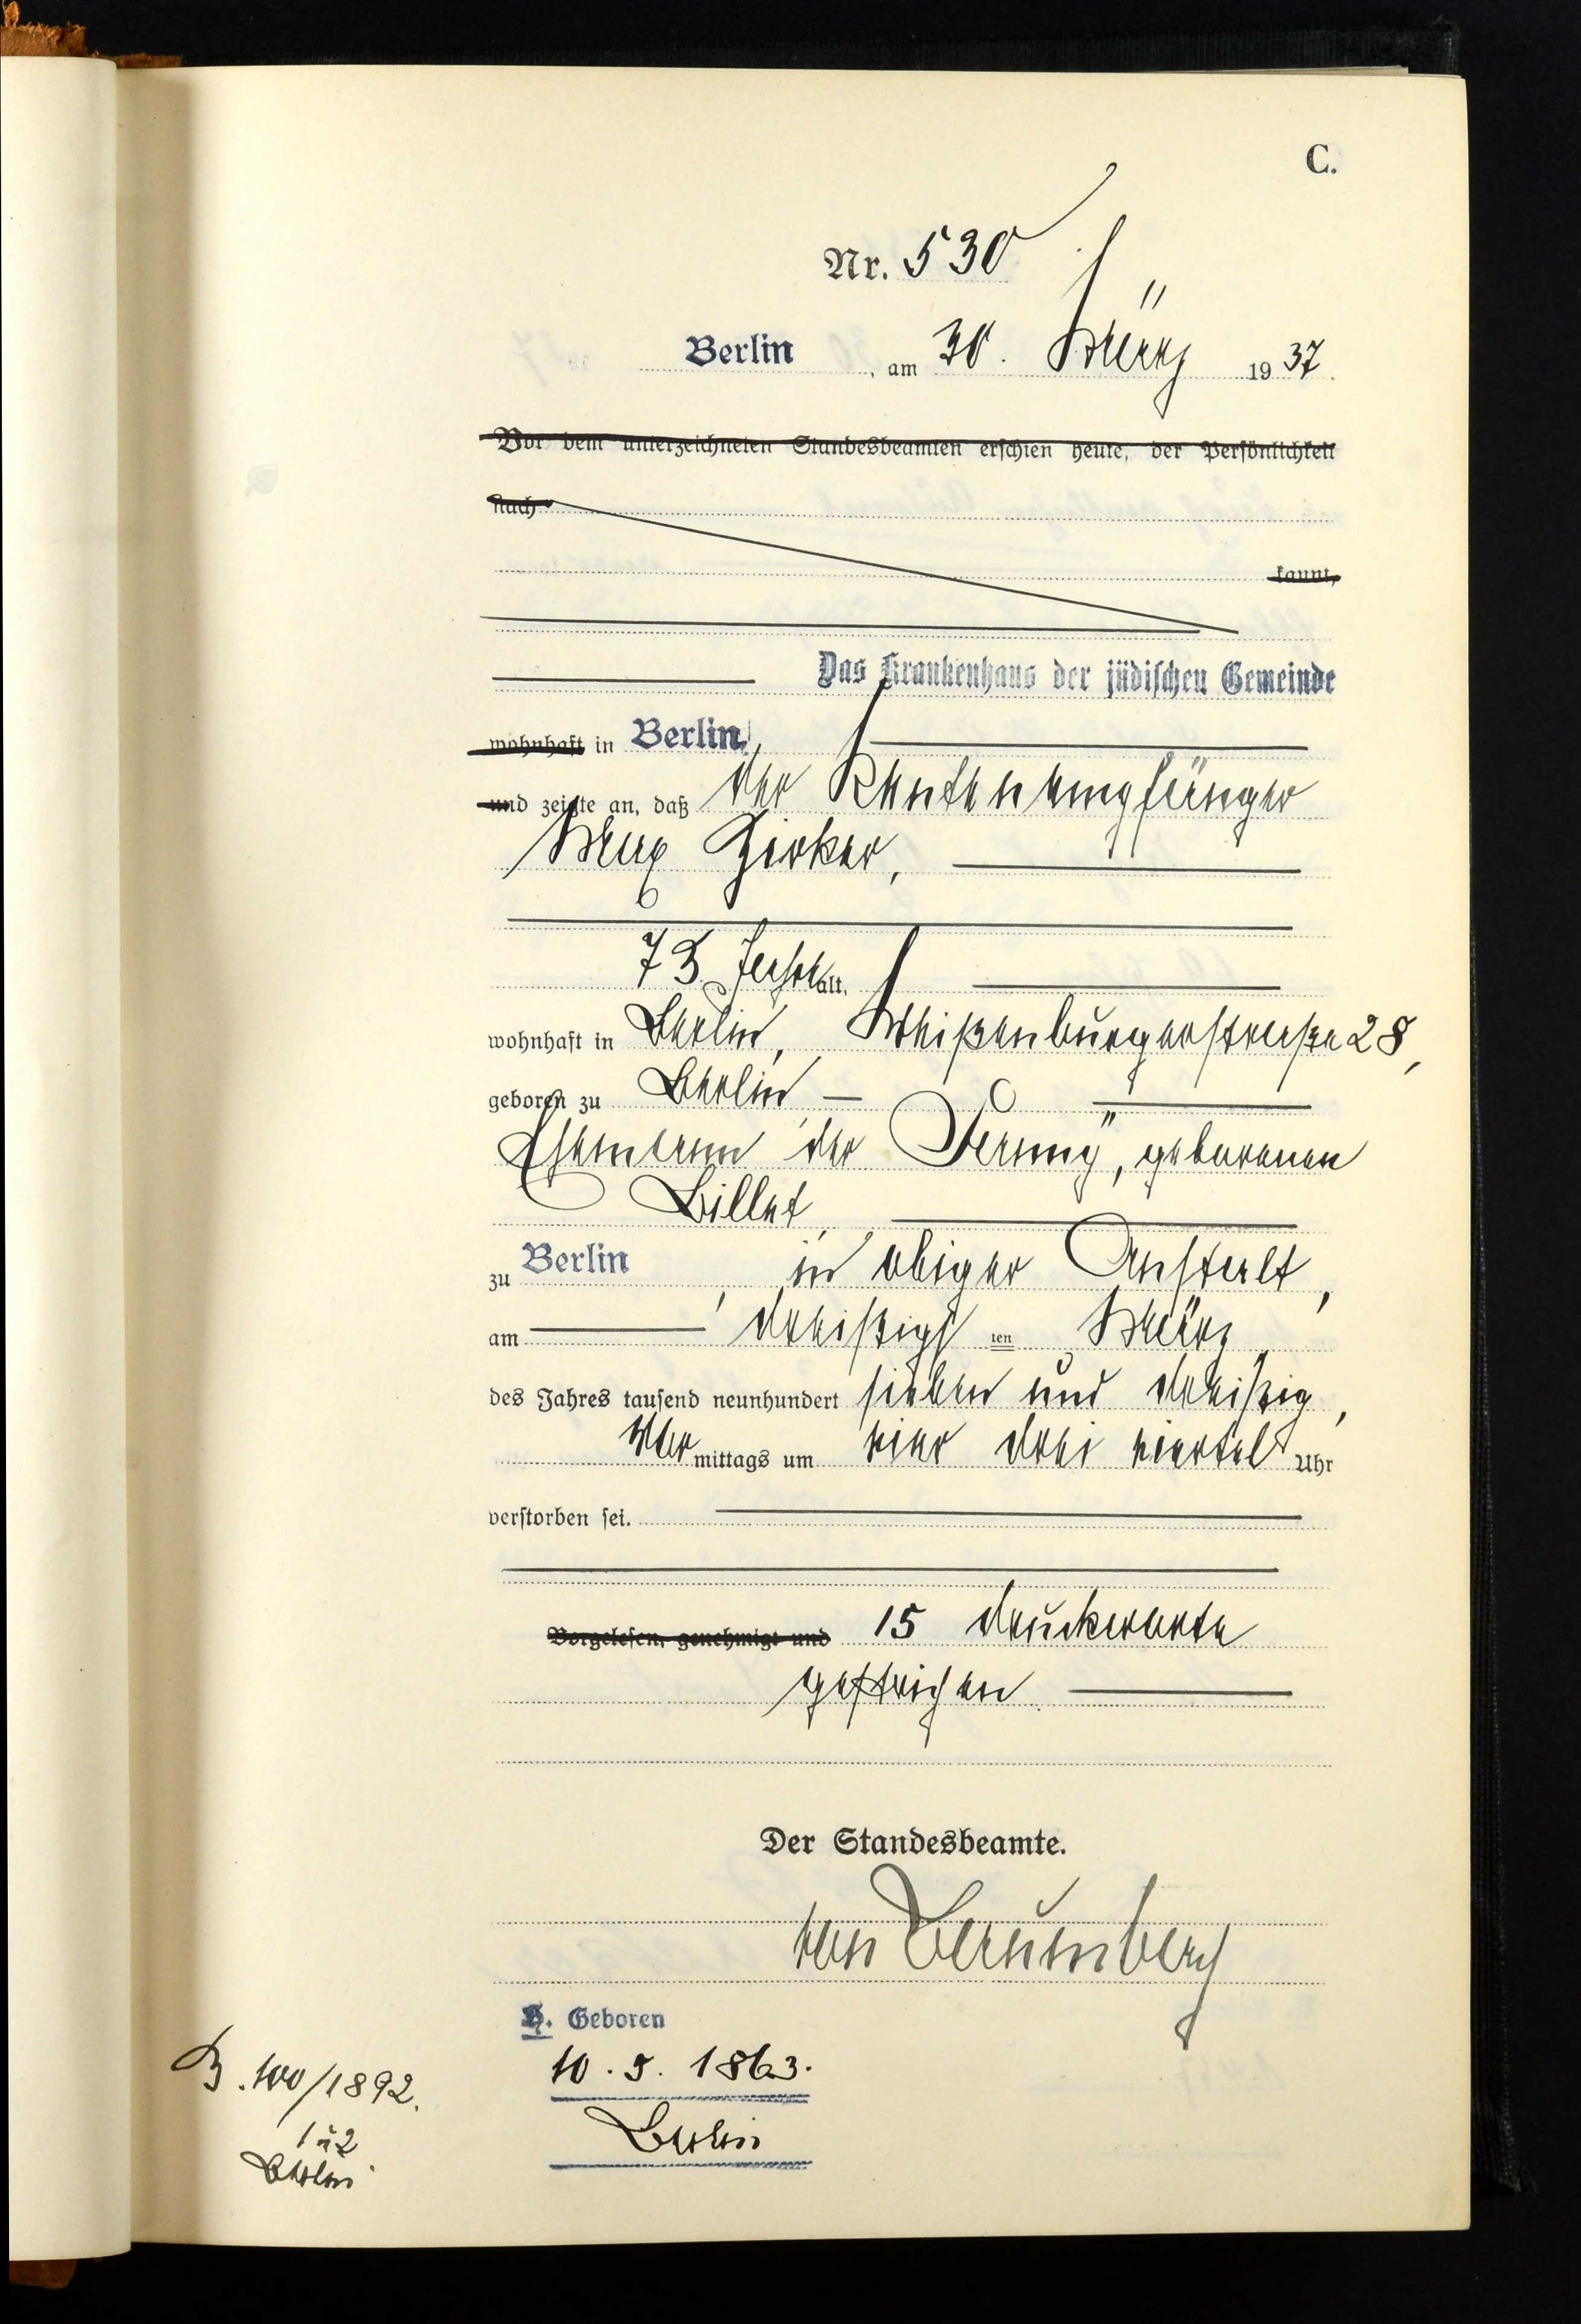 C.
Nr. 530
Berlin, am 30. März 1937.
Vor dem unterzeichneten Standesbeamten erschien heute, der Persönlichkeit
nach
kannt,
Das Krankenhaus der jüdischen Gemeinde
wohnhaft in Berlin,
und zeigte an, daß der Rentenempfänger
Max Zirker,
73 Jahre alt,
wohnhaft in Berlin, Weißenburgerstraße 28,
geboren zu Berlin
Ehemann der Fanny, geborenen
Billet,
zu Berlin, in obiger Anstalt,
am dreißigsten März
des Jahres tausend neunhundert sieben und dreißig,
Vormittags um vier drei viertel Uhr
verstorben sei.
Vorgelesen, genehmigt und 15 Druckworte
gestrichen.
Der Standesbeamte.
von
H. Geboren
10. 5. 1863.
Berlin
B. 100/1892.
Berlin